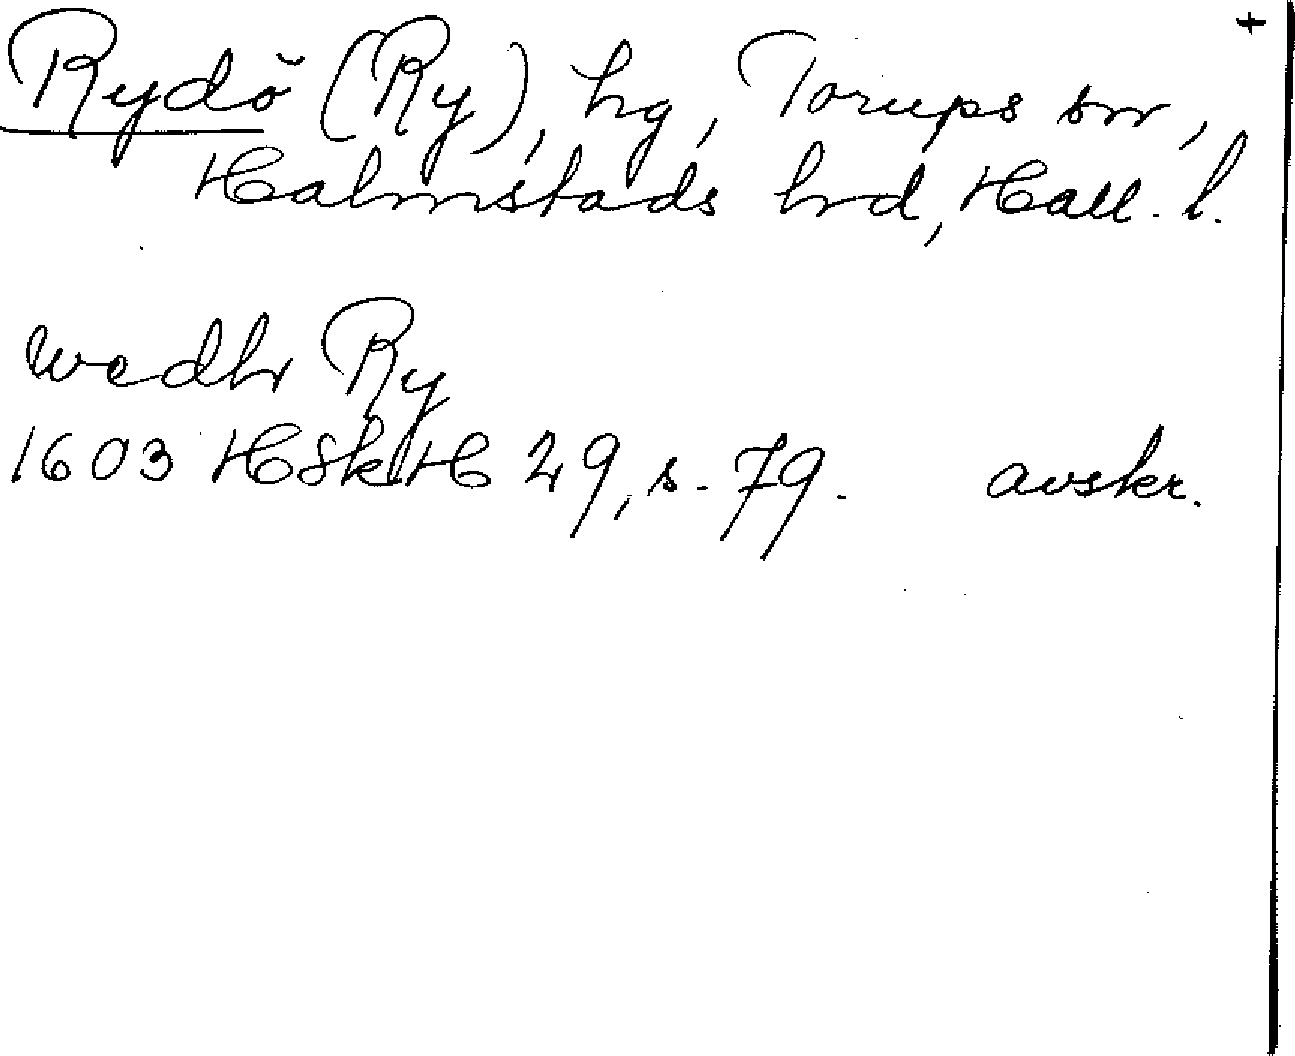 +
Rydö (Ry), hg, Torups sn,
Halmstads hrd, Hall. l.
wedhr Ry
1603 HSkH 29, s. 79. avskr.